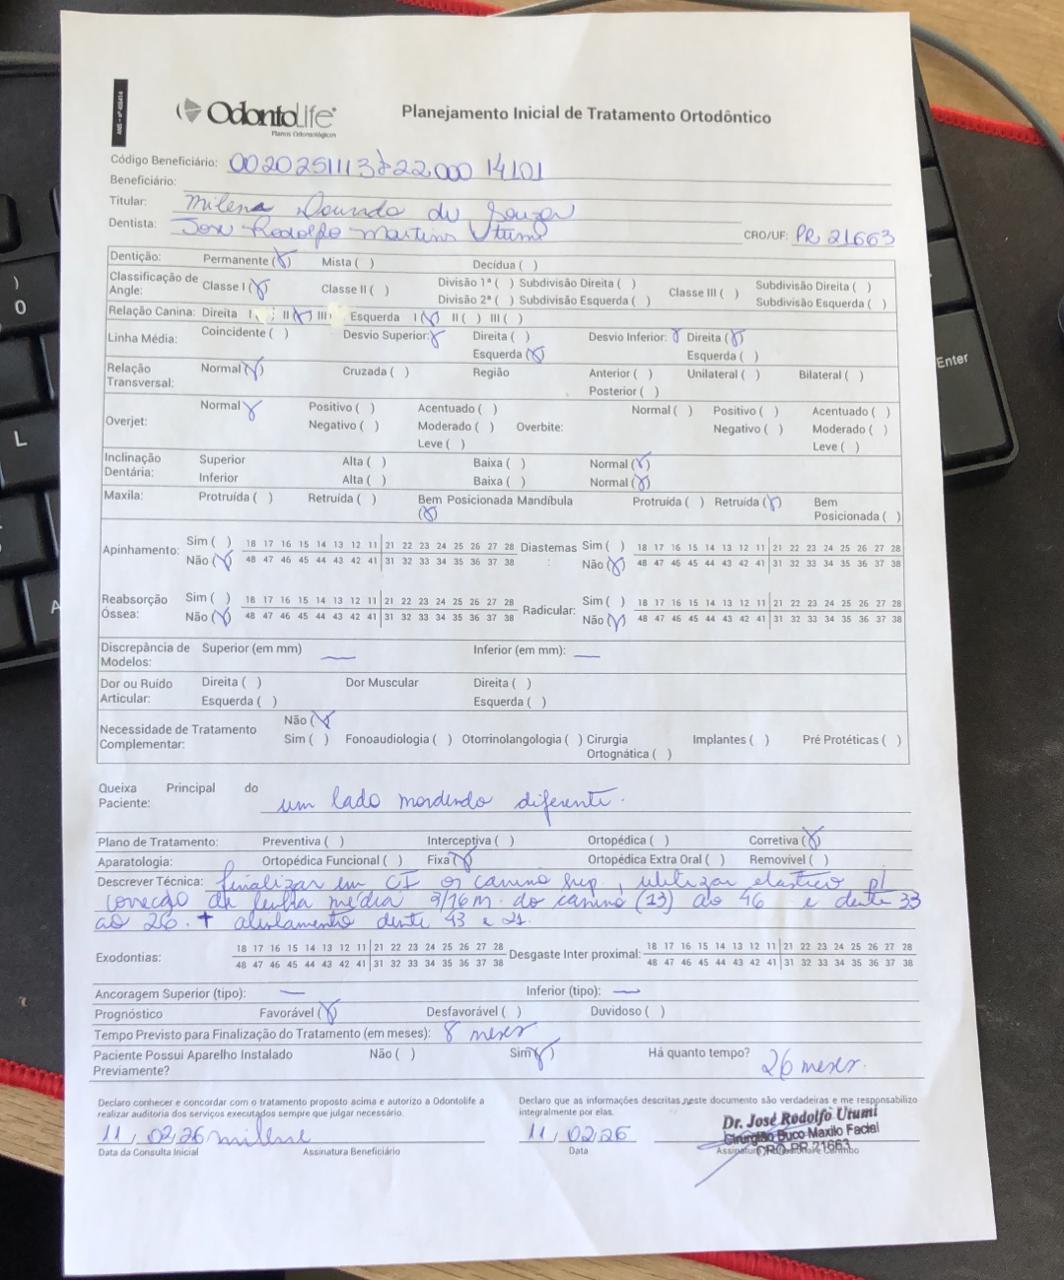 ANS - nº 403414
OdontoLife
Planos Odontológicos
Planejamento Inicial de Tratamento Ortodôntico
Código Beneficiário: 0020251113822.000 14101
Beneficiário:
Titular: Milena Dourado de Souza
Dentista: Jose Rodolfo Martins Utumi CRO/UF: PR 21663
Dentição: Permanente (X) Mista ( ) Decídua ( )
Classificação de Angle: Classe I (X) Classe II ( ) Divisão 1ª ( ) Subdivisão Direita ( ) Classe III ( ) Subdivisão Direita ( )
Divisão 2ª ( ) Subdivisão Esquerda ( ) Subdivisão Esquerda ( )
Relação Canina: Direita I II (X) III Esquerda I (X) II ( ) III ( )
Linha Média: Coincidente ( ) Desvio Superior: X Direita ( ) Desvio Inferior: X Direita (X)
Esquerda (X) Esquerda ( )
Relação Transversal: Normal (X) Cruzada ( ) Região Anterior ( ) Unilateral ( ) Bilateral ( )
Posterior ( )
Overjet: Normal X Positivo ( ) Acentuado ( ) Overbite: Normal ( ) Positivo ( ) Acentuado ( )
Negativo ( ) Moderado ( ) Negativo ( ) Moderado ( )
Leve ( ) Leve ( )
Inclinação Dentária: Superior Alta ( ) Baixa ( ) Normal (X)
Inferior Alta ( ) Baixa ( ) Normal (X)
Maxila: Protruída ( ) Retruída ( ) Bem Posicionada (X) Mandíbula Protruída ( ) Retruída (X) Bem Posicionada ( )
Apinhamento: Sim ( ) 18 17 16 15 14 13 12 11 21 22 23 24 25 26 27 28 Diastemas: Sim ( ) 18 17 16 15 14 13 12 11 21 22 23 24 25 26 27 28
Não (X) 48 47 46 45 44 43 42 41 31 32 33 34 35 36 37 38 Não (X) 48 47 46 45 44 43 42 41 31 32 33 34 35 36 37 38
Reabsorção Óssea: Sim ( ) 18 17 16 15 14 13 12 11 21 22 23 24 25 26 27 28 Radicular: Sim ( ) 18 17 16 15 14 13 12 11 21 22 23 24 25 26 27 28
Não (X) 48 47 46 45 44 43 42 41 31 32 33 34 35 36 37 38 Não (X) 48 47 46 45 44 43 42 41 31 32 33 34 35 36 37 38
Discrepância de Modelos: Superior (em mm) — Inferior (em mm): —
Dor ou Ruído Articular: Direita ( ) Dor Muscular Direita ( )
Esquerda ( ) Esquerda ( )
Necessidade de Tratamento Complementar: Não (X)
Sim ( ) Fonoaudiologia ( ) Otorrinolangologia ( ) Cirurgia Ortognática ( ) Implantes ( ) Pré Protéticas ( )
Queixa Principal do Paciente: um lado mordendo diferente.
Plano de Tratamento: Preventiva ( ) Interceptiva ( ) Ortopédica ( ) Corretiva (X)
Aparatologia: Ortopédica Funcional ( ) Fixa (X) Ortopédica Extra Oral ( ) Removível ( )
Descrever Técnica: finalizar em CI os canino sup, utilizar elastico p/
correção de linha média 3/16 M. do canino (13) ao 46 e dente 33
ao 26. + alinhamento dente 43 e 21.
Exodontias: 18 17 16 15 14 13 12 11 21 22 23 24 25 26 27 28 Desgaste Inter proximal: 18 17 16 15 14 13 12 11 21 22 23 24 25 26 27 28
48 47 46 45 44 43 42 41 31 32 33 34 35 36 37 38 48 47 46 45 44 43 42 41 31 32 33 34 35 36 37 38
Ancoragem Superior (tipo): — Inferior (tipo): —
Prognóstico Favorável (X) Desfavorável ( ) Duvidoso ( )
Tempo Previsto para Finalização do Tratamento (em meses): 8 meses
Paciente Possui Aparelho Instalado Previamente? Não ( ) Sim (X) Há quanto tempo? 26 meses.
Declaro conhecer e concordar com o tratamento proposto acima e autorizo a Odontolife a
realizar auditoria dos serviços executados sempre que julgar necessário.
Declaro que as informações descritas neste documento são verdadeiras e me responsabilizo
integralmente por elas.
11/02/26 milene
Data da Consulta Inicial Assinatura Beneficiário
11/02/26
Data
Dr. José Rodolfo Utumi
Cirurgião Buco Maxilo Facial
CRO PR 21663
Enter
0
L
A